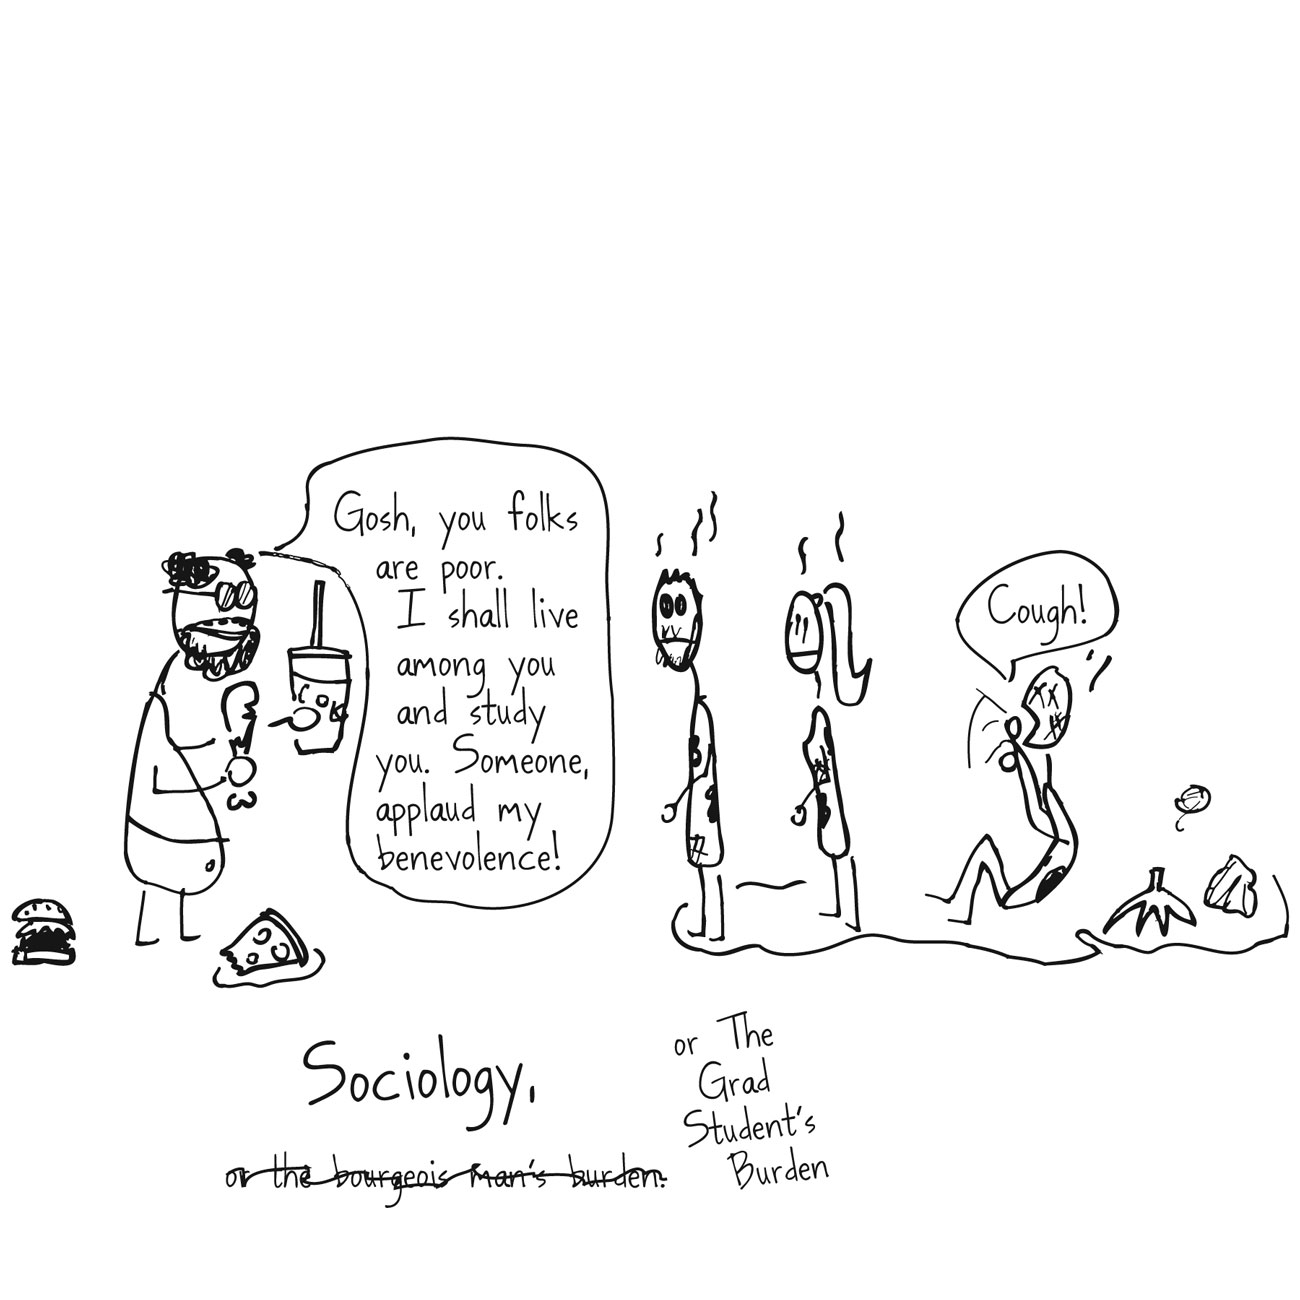 Gosh, you folks
are poor.
I shall live
among you
and study
you. Someone,
applaud my
benevolence!
COK
Cough!
Sociology,
or the bourgeois man's burden.
or The
Grad
Student's
Burden